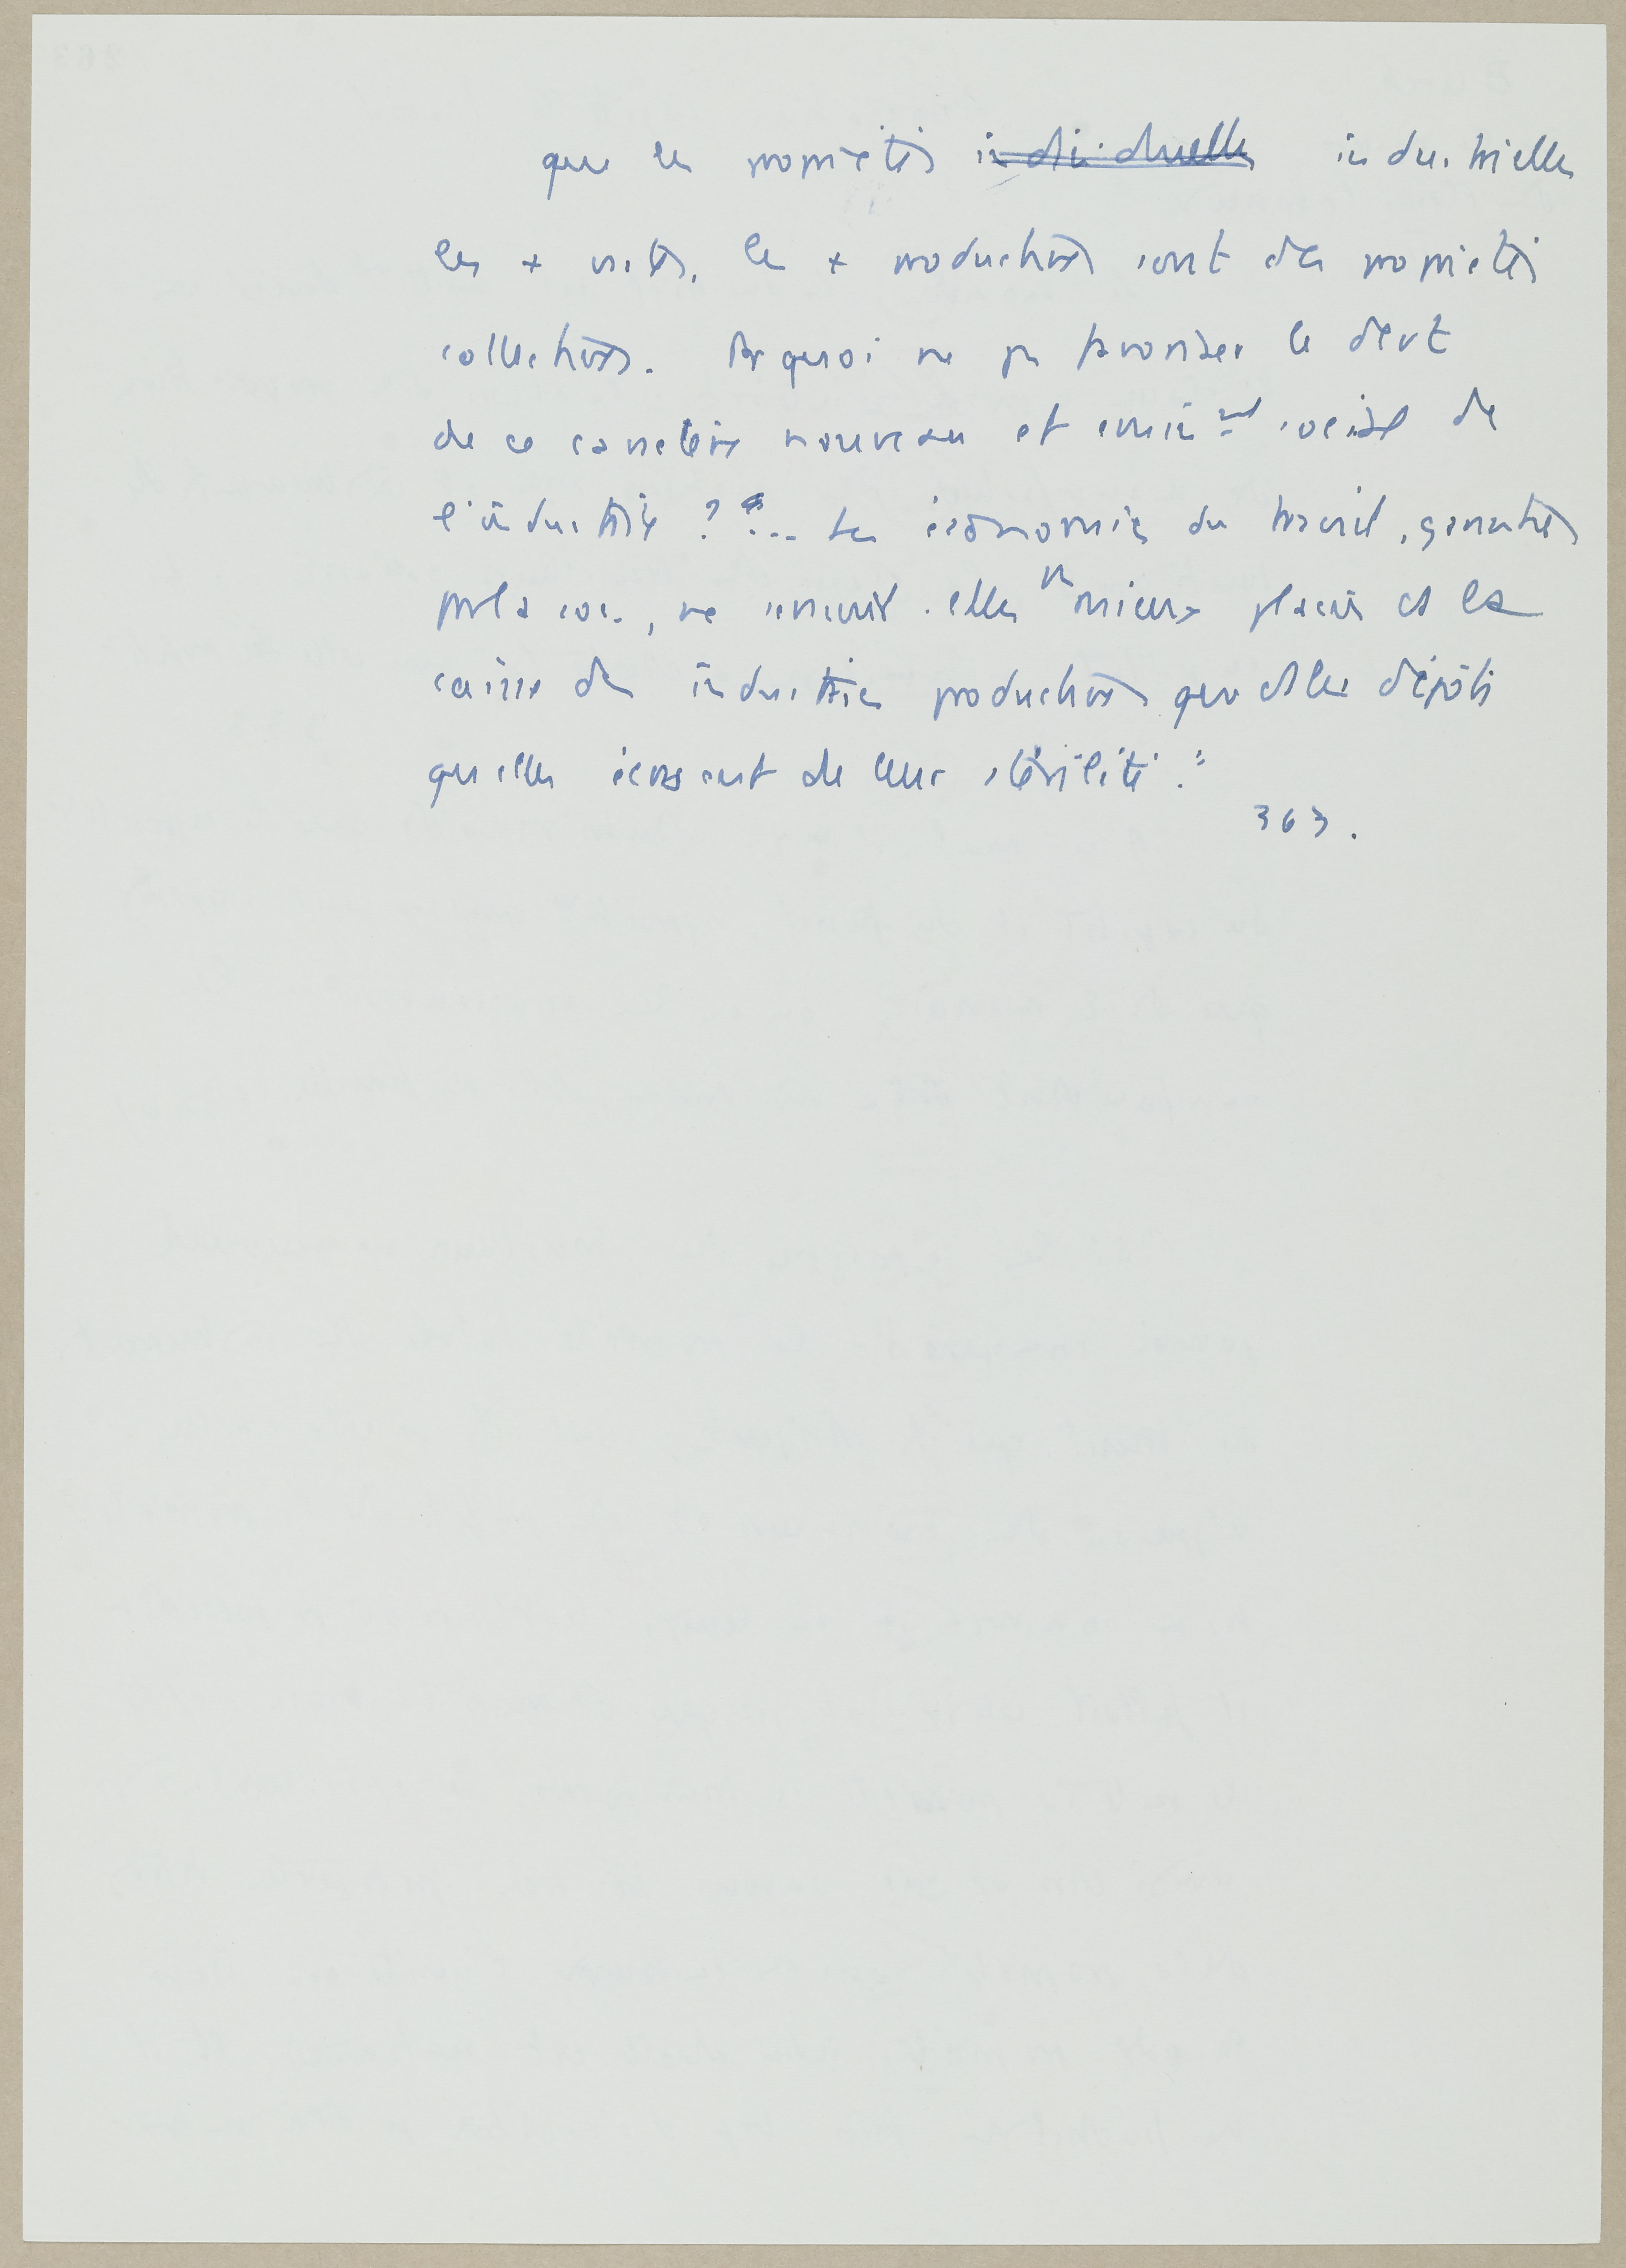 que les propriétés individuelles industrielles
les + vastes, les + productives sont des propriétés
collectives. Pquoi ne pas favoriser le devt
de ce caractère nouveau et émin^ent social de
l'industrie ? ... Les économies du travail, garanties
par la soc., ne seraient-elles pas mieux placées ds la
caisse des industries productives que ds les dépôts
qu'elles écrasent de leur stérilité ?"
363.